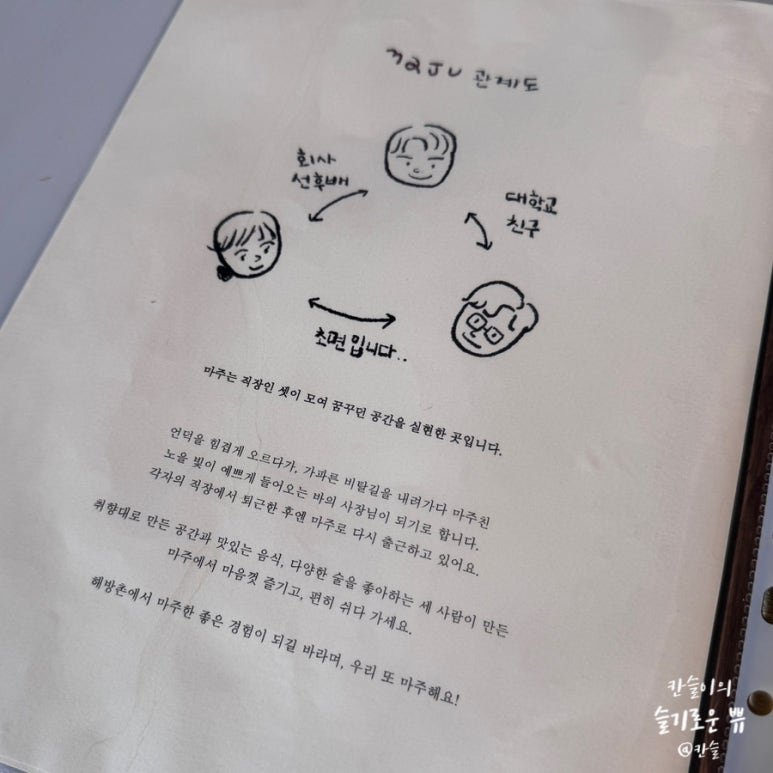 관계도
회사
선후배
대학교
친구
초면입니다..
마주는 직장인 셋이 모여 꿈꾸던 공간을 실현한 곳입니다.
언덕을 힘겹게 오르다가, 가파른 비탈길을 내려가다 마주친
노을 빛이 예쁘게 들어오는 바의 사장님이 되기로 합니다.
각자의 직장에서 퇴근한 후엔 마주로 다시 출근하고 있어요.
취향대로 만든 공간과 맛있는 음식, 다양한 술을 좋아하는 세 사람이 만든
마주에서 마음껏 즐기고, 편히 쉬다 가세요.
해방촌에서 마주한 좋은 경험이 되길 바라며, 우리 또 마주해요!
칸슬이의
슬기로운 쀼
@칸슬